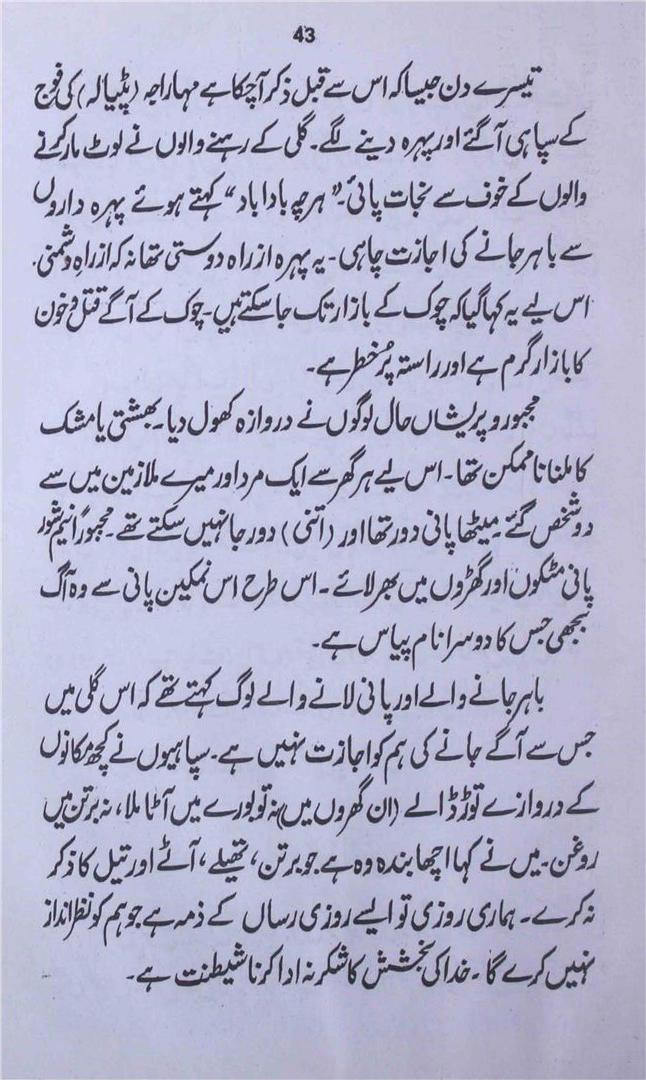 43
تیسرے دن جیسا کہ اس سے قبل ذکر آچکا ہے مہاراجہ (پٹیالہ) کی فوج
کے سپاہی آگئے اور پہرہ دینے لگے۔ گلی کے رہنے والوں نے لوٹ مار کرنے
والوں کے خوف سے نجات پائی۔ "ہرچہ باداباد" کہتے ہوئے پہرہ داروں
سے باہر جانے کی اجازت چاہی۔ یہ پہرہ از راہ دوستی تھا نہ کہ از راہِ دشمنی۔
اس لیے یہ کہا گیا کہ چوک کے بازار تک جاسکتے ہیں۔ چوک کے آگے قتل و خون
کا بازار گرم ہے اور راستہ پُر خطر ہے۔
مجبور و پریشاں حال لوگوں نے دروازہ کھول دیا۔ بھشتی یا مشک
کا ملنا ناممکن تھا۔ اس لیے ہر گھر سے ایک مرد اور میرے ملازمین میں سے
دو شخص گئے۔ میٹھا پانی دور تھا اور (اتنی) دور جا نہیں سکتے تھے۔ مجبوراً نیم شور
پانی مٹکوں اور گھڑوں میں بھر لائے۔ اس طرح اس نمکین پانی سے وہ آگ
بجھی جس کا دوسرا نام پیاس ہے۔
باہر جانے والے اور پانی لانے والے لوگ کہتے تھے کہ اس گلی میں
جس سے آگے جانے کی ہم کو اجازت نہیں ہے۔ سپاہیوں نے کچھ مکانوں
کے دروازے توڑ ڈالے (ان گھروں میں) نہ تو بورے میں آٹا ملا، نہ برتن میں
روغن۔ میں نے کہا اچھا بندہ وہ ہے جو برتن، تھیلے، آٹے اور تیل کا ذکر
نہ کرے۔ ہماری روزی تو ایسے روزی رساں کے ذمہ ہے جو ہم کو نظر انداز
نہیں کرے گا۔ خدا کی بخشش کا شکر نہ ادا کرنا شیطنت ہے۔